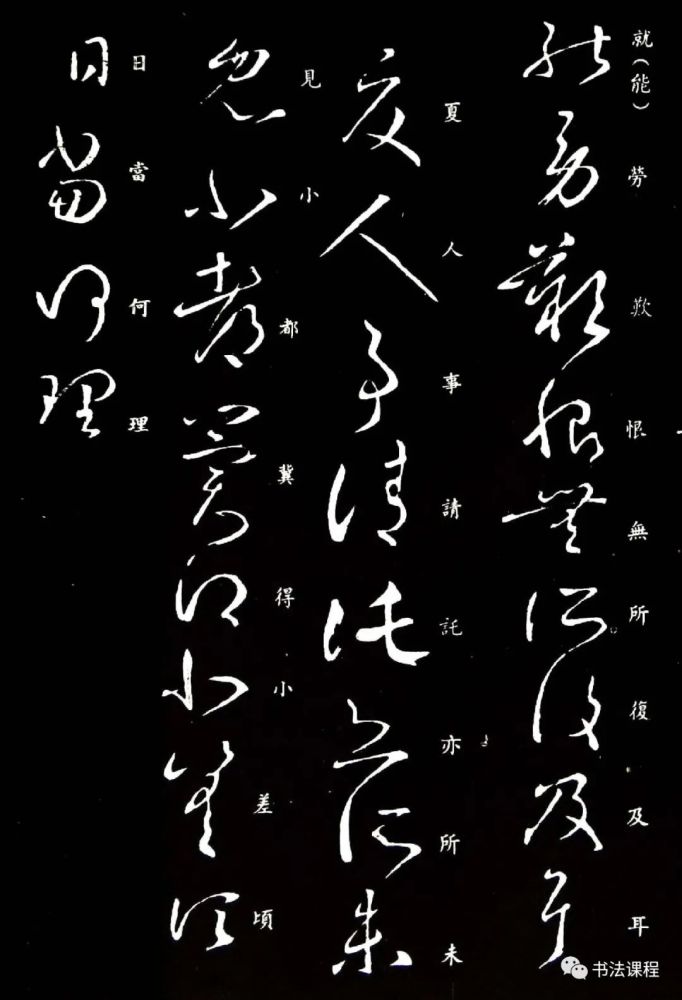 就（能）勞歎恨無所復及耳
夏人事請託亦所未
見小都冀得小差頃
日當何理
书法课程